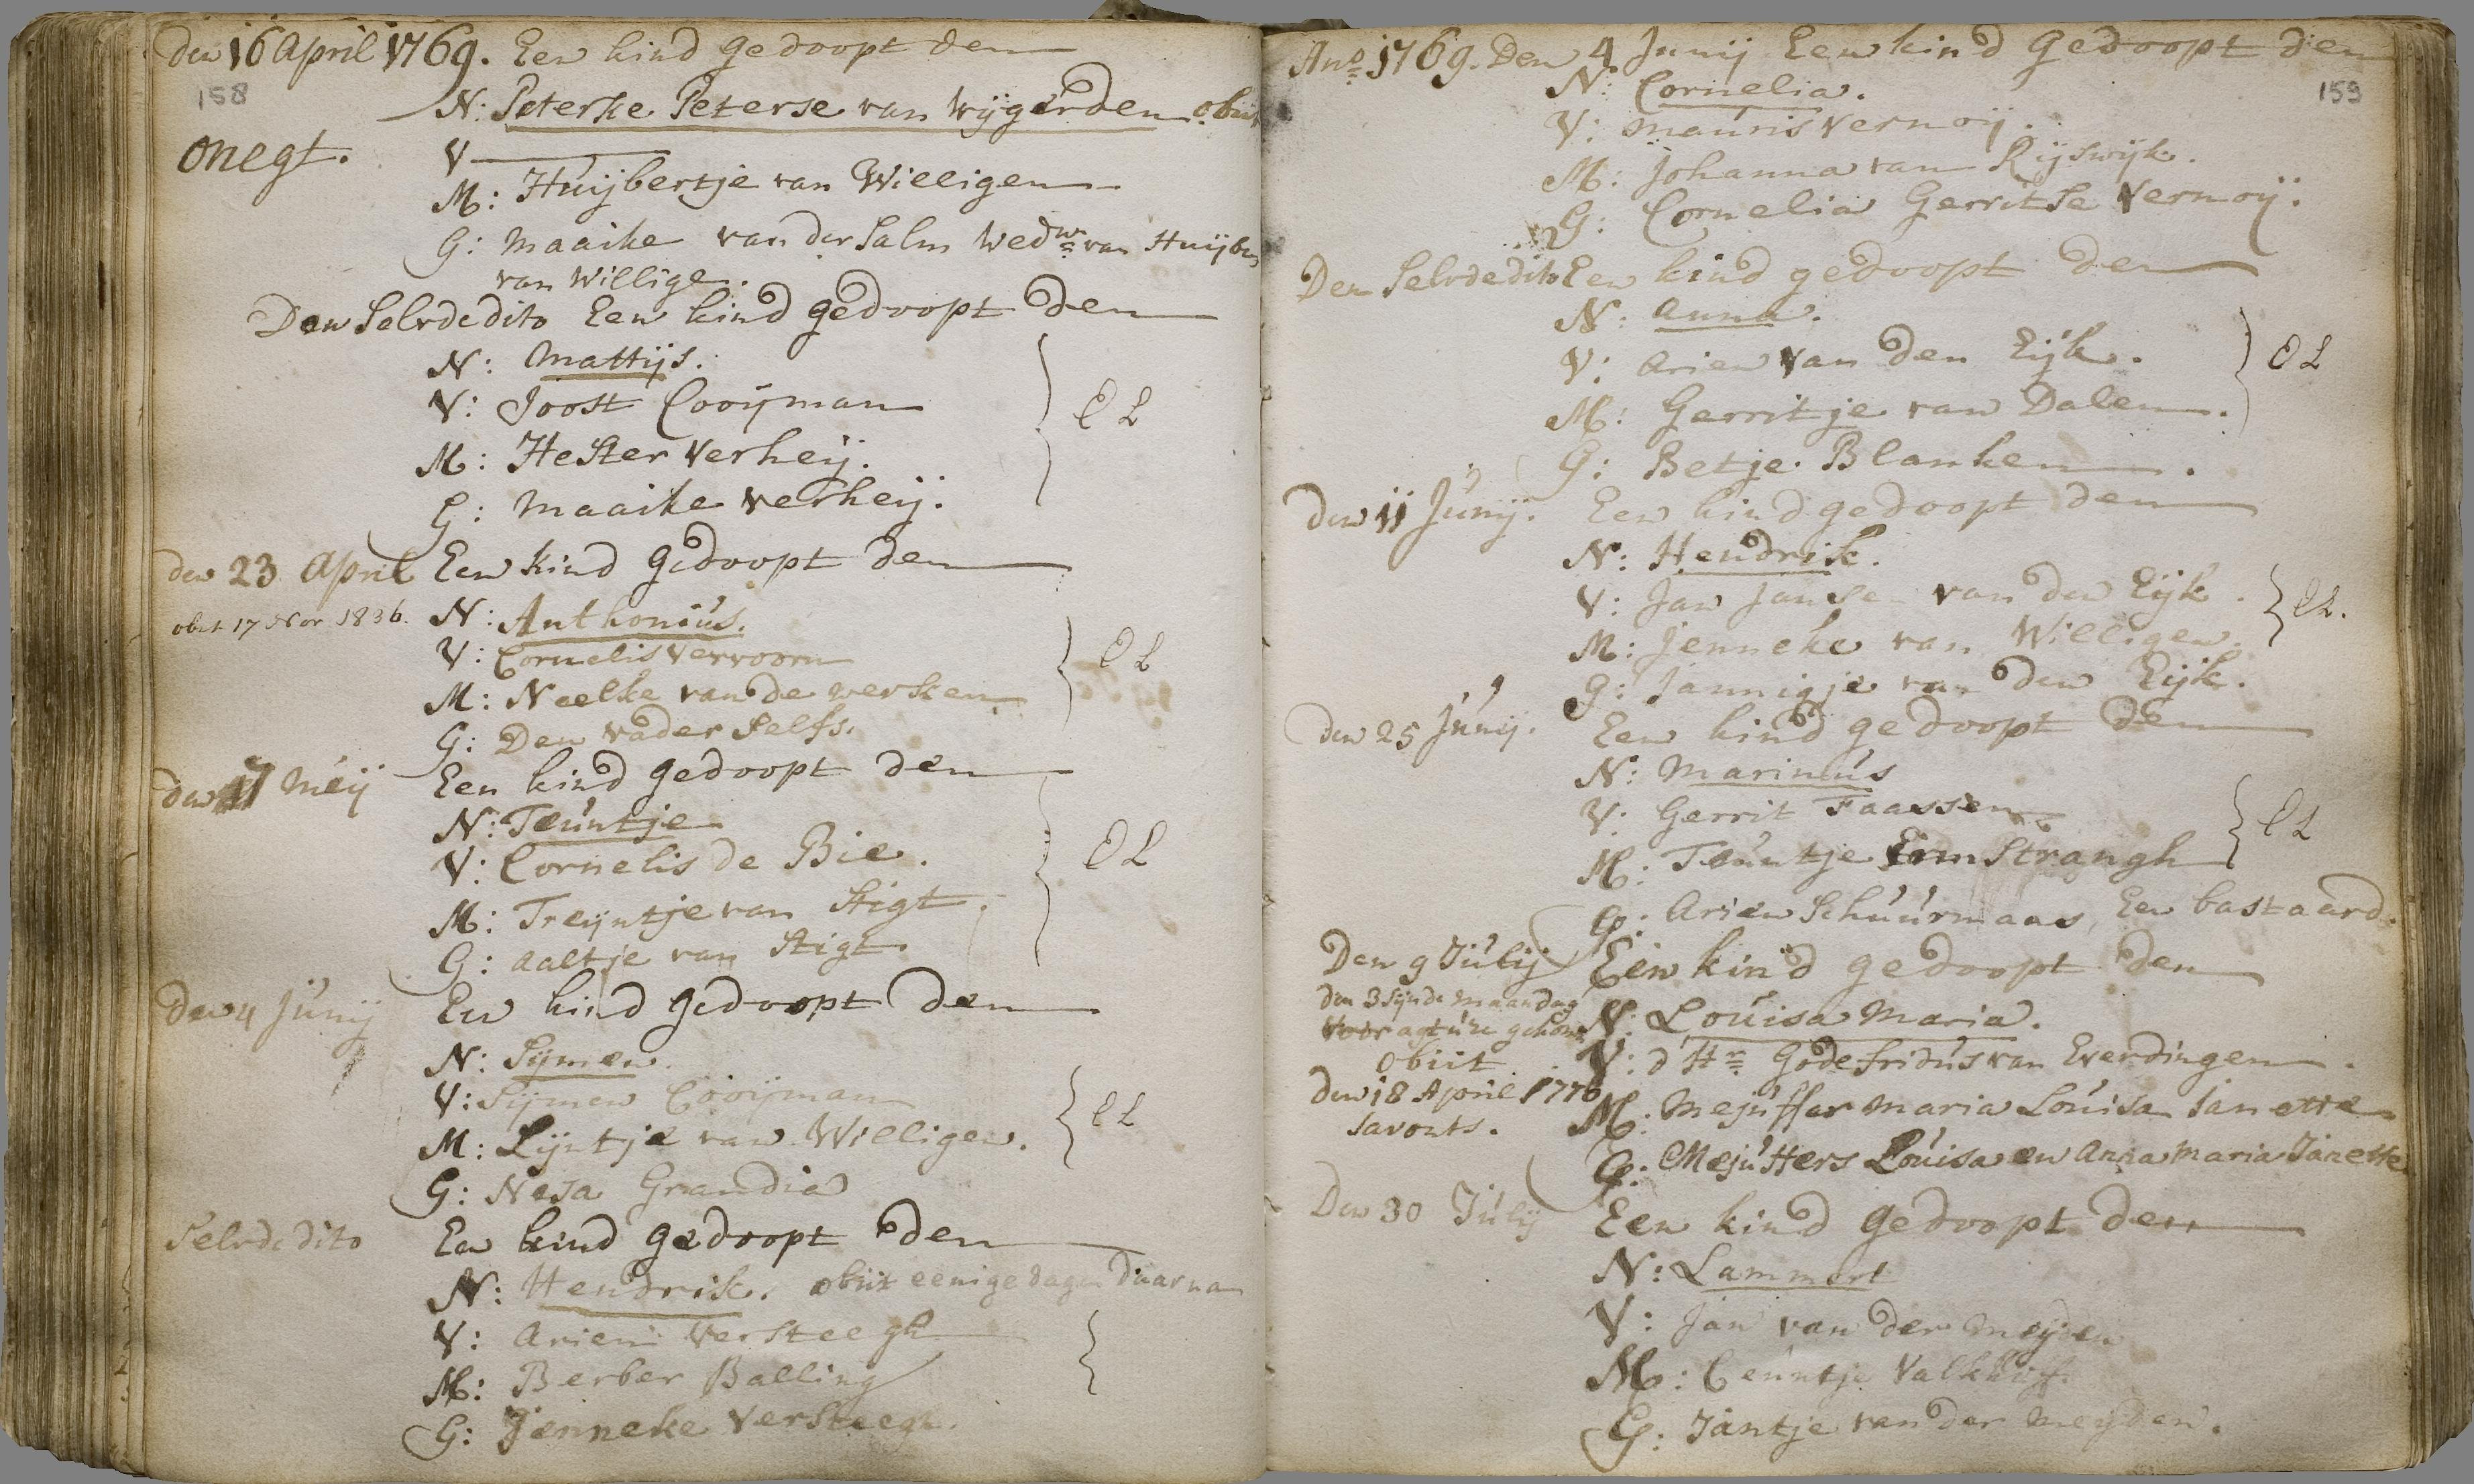 den 16 April 1769. Een kind gedoopt den
158
N: Peterke Peterse van Wijgerden obiit
onegt.
V
M: Huijbertje van Willigen
G: Maaike van der Salm Wedwe van Huijb
van Willige.
Den Selvde dito Een kind gedoopt den
N: Mattijs.
V: Joost Cooijman
M: Hester Verheij.
G: Maaike Verheij.
EL
den 23 April Een kind gedoopt den
obit 17 Nov 1836.
N: Anthonius.
V: Cornelis Vervoorn
M: Neelke van de werken
G: Den vader selfs.
EL
den 7 Meij Een kind gedoopt den
N: Teuntje
V: Cornelis de Bie.
M: Treijntje van Stigt.
G: Aaltje van Stigt.
EL
den 4 Junij Een kind gedoopt den
N: Sijmen.
V: Sijmen Cooijman
M: Lijntje van Willigen.
G: Nesa Grandia
EL
Selvde dito Een kind gedoopt den
N: Hendrik. obiit eenige dagen daarna
V: Arien Versteegh
M: Berber Balling
G: Jenneke Versteegh.
Ano 1769. Den 4 Junij Een kind Gedoopt den
159
N: Cornelia.
V: Mauris Vernoij.
M: Johanna van Rijswijk.
G: Cornelia Gerritse Vernoij.
Den Selvde dito Een kind gedoopt den
N: Anna.
V: Arien Van den Eijk.
M: Gerritje van Dalen.
G: Betje Blanken.
EL
den 11 Junij. Een kind gedoopt den
N: Hendrik.
V: Jan Janse van den Eijk.
M: Jenneke van Willigen.
G: Jannigje van den Eijk.
EL.
den 25 Junij. Een kind gedoopt den
N: Marinus
V: Gerrit Faassen
M: Teuntje Ermstrangh
G: Arien Schuurmaas, Een bastaard.
EL
Den 9 Julij Een kind gedoopt den
den 3 sijnde maandag
voor agt ure gebore
obiit
den 18 April 1776
savonts.
N: Louisa Maria.
V: d Hr Godefridus van Everdingen.
M: Mejuffer Maria Louisa Janette
G: Mejuffers Louisa en Anna Maria Janette
Den 30 Julij Een kind gedoopt den
N: Lammert
V: Jan van der Meijden
M: Ceuntje Valkhof.
G: Jantje van der Meijden.